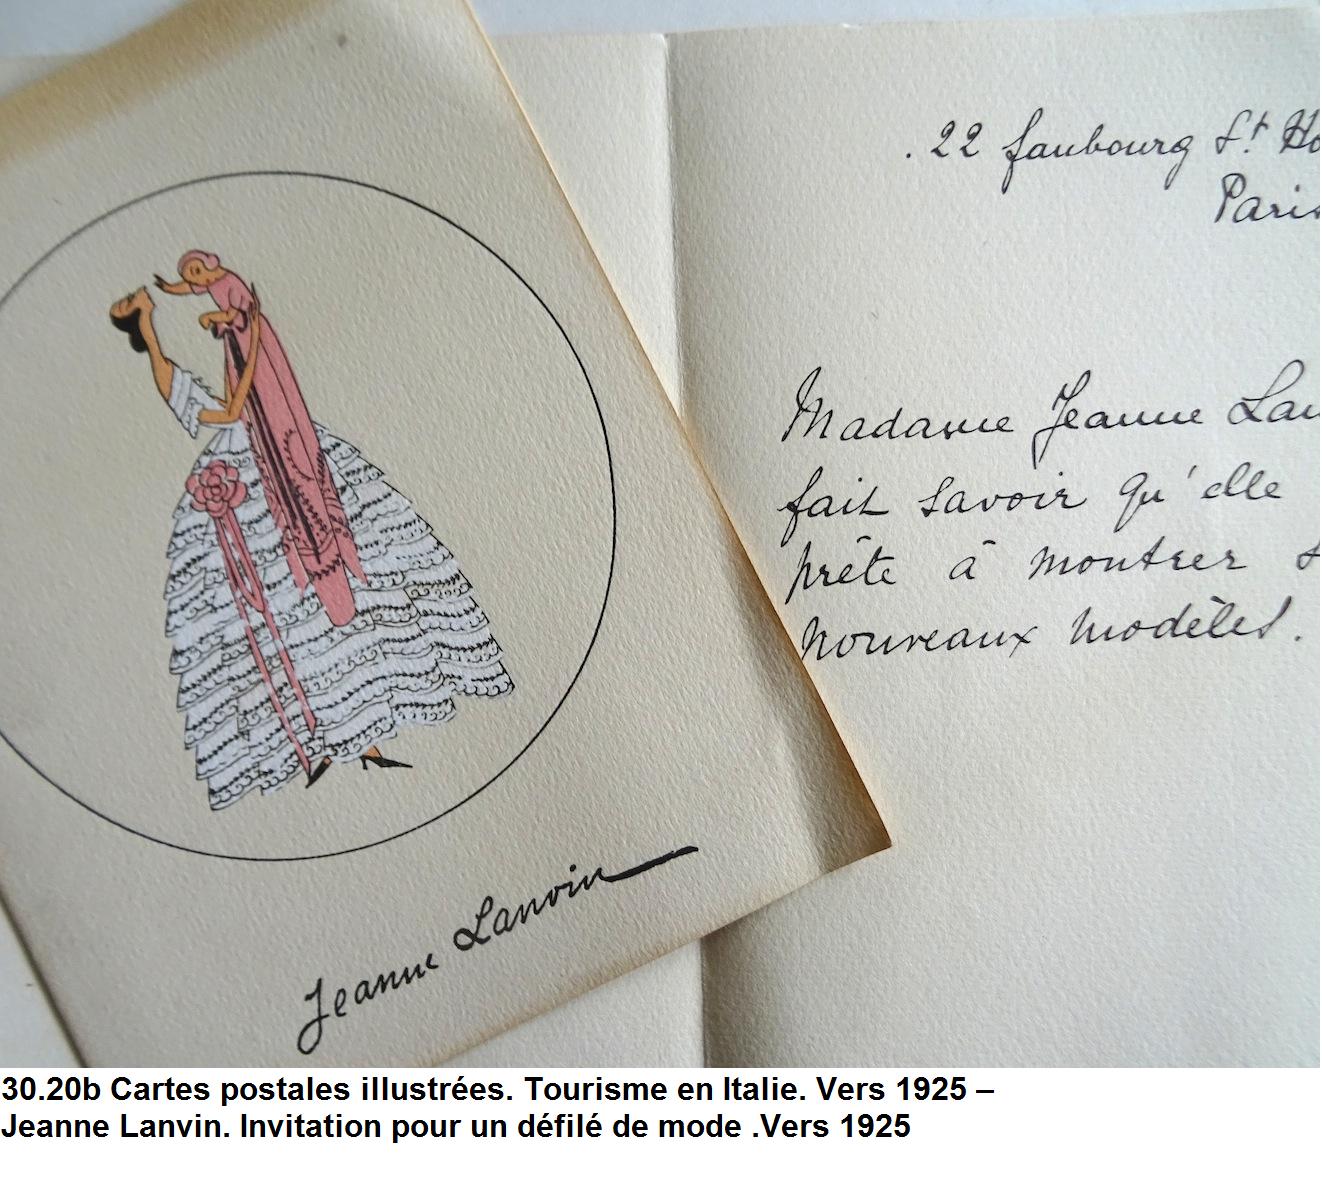 . 22 faubourg St. Ho
Paris
Madame Jeanne Lan
fait savoir qu'elle
prête à montrer s
nouveaux modèles.
Jeanne Lanvin
30.20b Cartes postales illustrées. Tourisme en Italie. Vers 1925 –
Jeanne Lanvin. Invitation pour un défilé de mode .Vers 1925